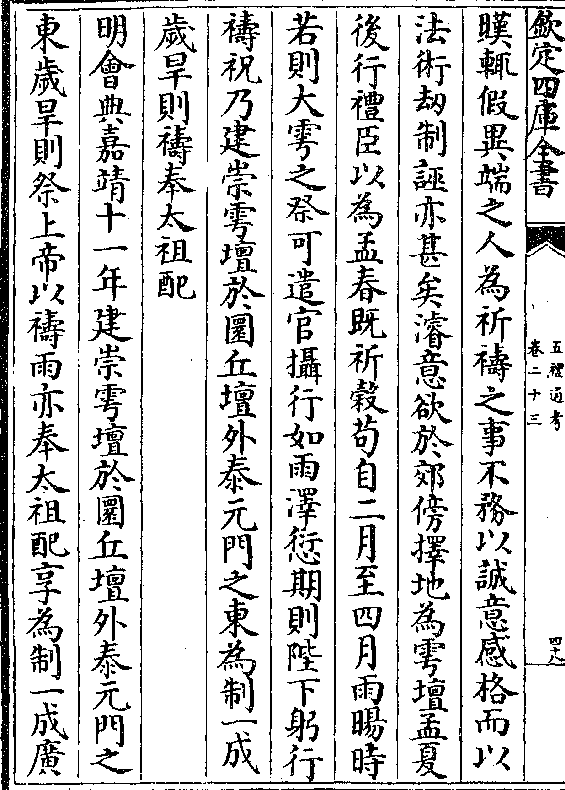 欽定四庫全書
五禮通考
卷二十三
四十八
暵輒假異端之人為祈禱之事不務以誠意感格而以
法術劫制誣亦甚矣濬意欲於郊傍擇地為雩壇孟夏
後行禮臣以為孟春既祈穀苟自二月至四月雨暘時
若則大雩之祭可遣官攝行如雨澤愆期則陛下躬行
禱祝乃建崇雩壇於圜丘壇外泰元門之東為制一成
歲旱則禱奉太祖配
明會典嘉靖十一年建崇雩壇於圜丘壇外泰元門之
東歲旱則祭上帝以禱雨亦奉太祖配享為制一成廣